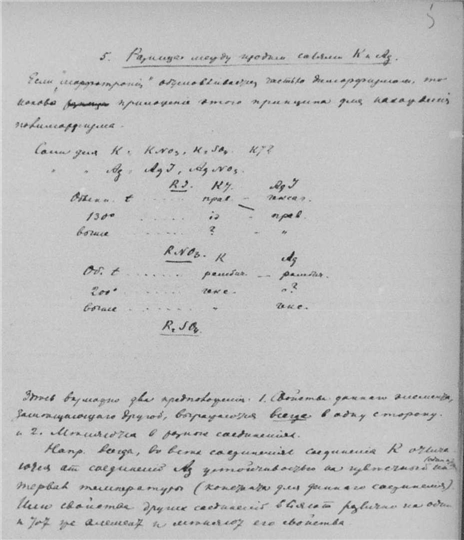 5
5. Разница между продин солями K и Ag.
Если "морфотропий" обусловливается частью диморфизмом, то
какова применение этого принципа для нахождений
полиморфизма.
Соли для K: KNO3, K2SO4, KJ
" " Ag, AgJ, AgNO3
RJ. KJ. AgJ
Обыкн. t ..... прав. — гексаг.
130° ..... id — прав.
выше ..... ? "
RNO3 K Ag
Об. t ..... ромбич. — ромбич.
200° ..... гекс. "?
выше ..... " гекс.
R2SO4
Здесь возможно два предположения. 1. Свойства данного элемента,
замещающего другой, выражаются всегда в одну сторону
и 2. Меняются в разных соединениях.
Напр. всегда, во всех соединениях соединения K отлича
ются от соединений Ag устойчивостью на известный ин
тервал температуры (константа для данного соединения).
Или свойства других соединений влияют различно на один
и тот же элемент и меняют его свойства